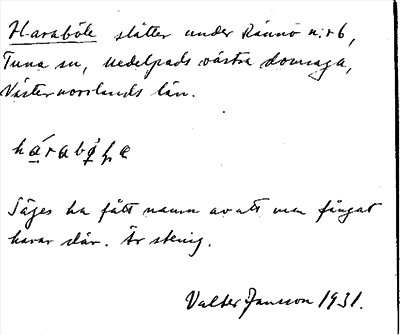 Haraböle slåtter under Rännö n:r 6,
Tuna sn, Medelpads västra domsaga,
Västernorrlands län.
hárabǿle
Säges ha fått namn av att man fångat
harar där. Är stenig.
Valter Jansson 1931.